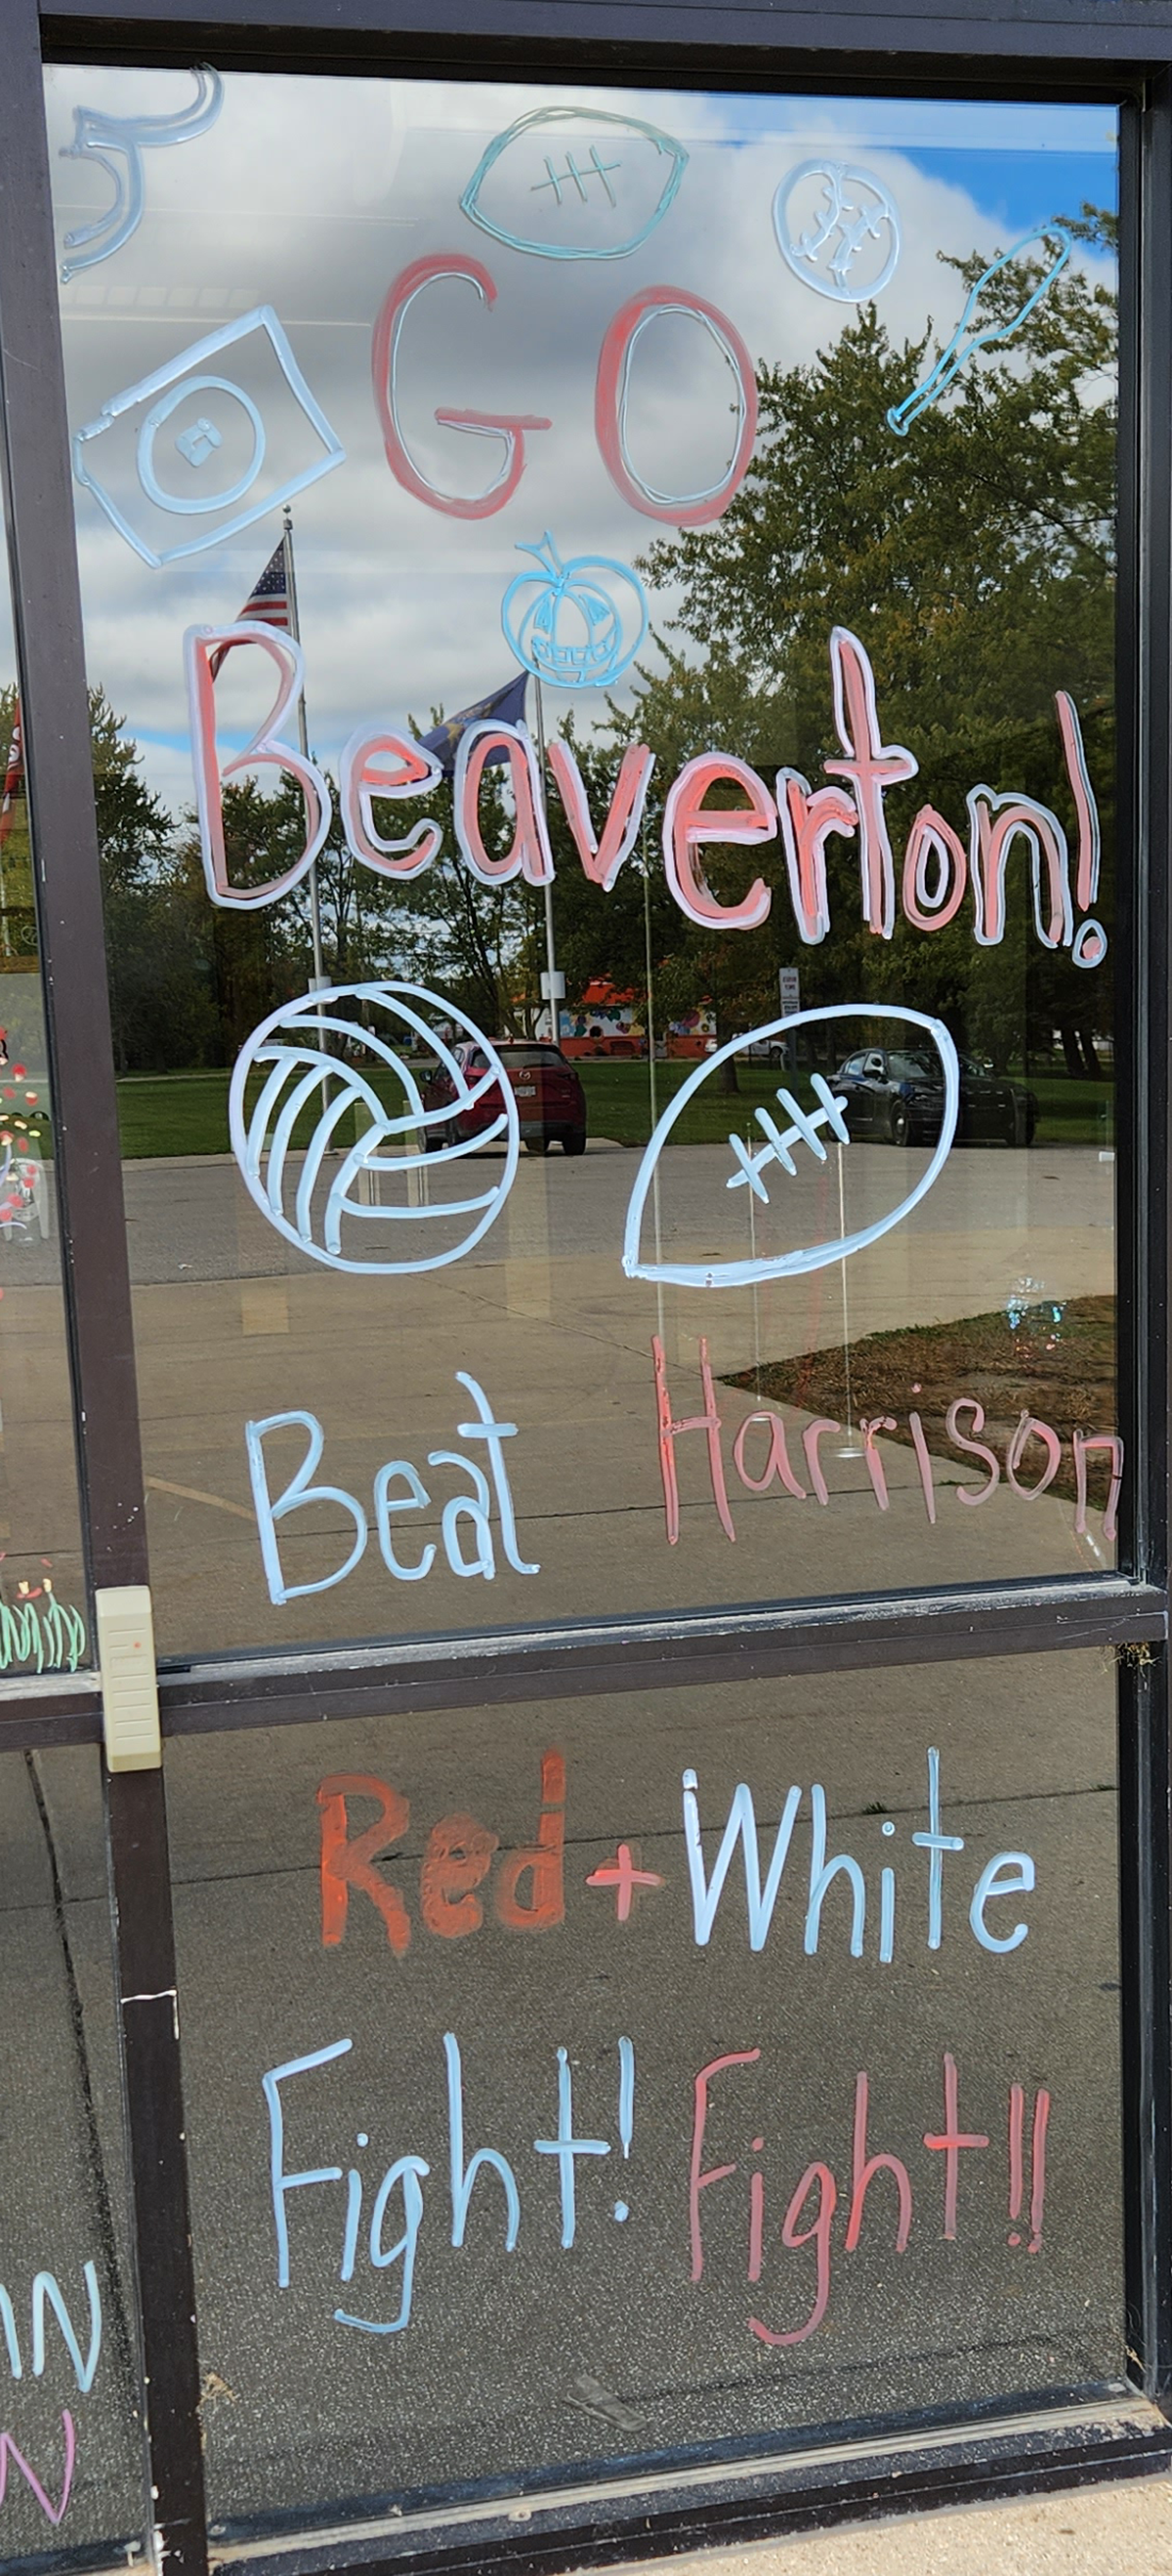 GO
Beaverton!
Beat Harrison
Red + White
Fight! Fight!!